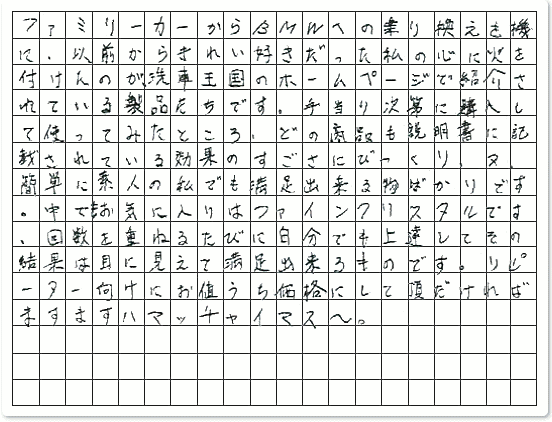 ファミリーカーからBMWへの乗り換えを機
に、以前からきれい好きだった私の心に火を
付けたのが、洗車王国のホームページで紹介さ
れている製品たちです。手当り次第に購入し
て使ってみたところ、どの商品も説明書に記
載されている効果のすごさにびっくり、又、
簡単に素人の私でも満足出来る物ばかりです
。中でもお気に入りはファインクリスタルです
、回数を重ねるたびに自分でも上達してその
結果は目に見えて満足出来るものです。リピ
ーター向けにお値うち価格にして頂だければ
ますますハマッチャイマス〜。